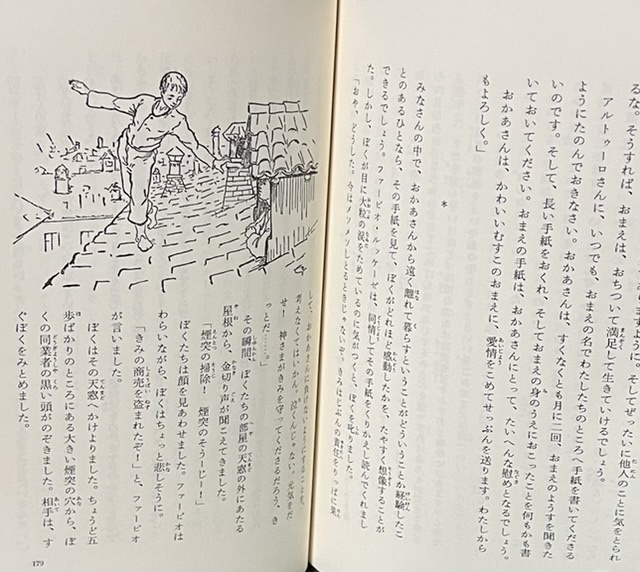 ますように。そしてぜったいに他人のことに気をとられ
るな。そうすれば、おまえは、おちついて満足して生きていけるでしょう。
アルトゥーロさんに、いつでも、おまえの名でわたしたちのところへ手紙を書いてくださる
ようにたのんでおきなさい。おかあさんは、すくなくとも月に二回、おまえのようすを聞きた
いのです。そして、長い手紙をおくれ、そしておまえの身のうえにおこったことを何もかも書
いておいてください。おまえの手紙は、おかあさんにとって、たいへんな慰めとなるでしょう。
おかあさんは、かわいいむすこのおまえに、愛情をこめてせっぷんを送ります。わたしから
もよろしく。」
*
みなさんの中で、おかあさんから遠く離れて暮らすということがどういうことか経験したこ
とのあるひとなら、その手紙を見て、ぼくがどれほど感動したかを、たやすく想像することが
できるでしょう。ファービオ・ルッカーゼは、同情してその手紙をくりかえし読んでくれまし
た。しかし、ぼくが目に大粒の涙をためているのに気がつくと、ぼくを叱りました。
「おや、どうした。今はメソメソしとるときじゃないぞ。きみはじぶんの責任をりっぱに果
して、おかあさんに負けないようにすることを、
考えなくてはいかん。泣くんじゃない。元気をだ
せ！　神さまがきみを守ってくださるだろう、き
っとだ……。」
その瞬間、ぼくたちの部屋の天窓の外にあたる
屋根から、金切り声が聞こえてきました。
「煙突の掃除！　煙突のそうーじー！」
ぼくたちは顔を見あわせました。ファービオは
わらいながら、ぼくはちょっと悲しそうに。
「きみの商売を盗まれたぞー！」と、ファービオ
が言いました。
ぼくはその天窓へかけよりました。ちょうど五
歩ばかりのところにある大きい煙突の穴から、ぼ
くの同業者の黒い頭がのぞきました。相手は、す
ぐぼくをみとめました。
179